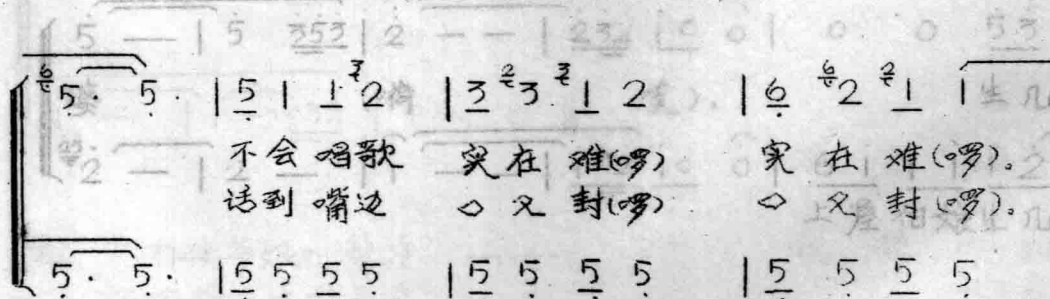 6 5· 5· | 5 1 1 3 2 | 3 2 3 3 1 2 | 6 6 2 2 1 1
不会唱歌 实在难(啰) 实在难(啰)。
话到嘴边 口又封(啰) 口又封(啰)。
5· 5· | 5 5 5 5 | 5 5 5 5 | 5 5 5 5